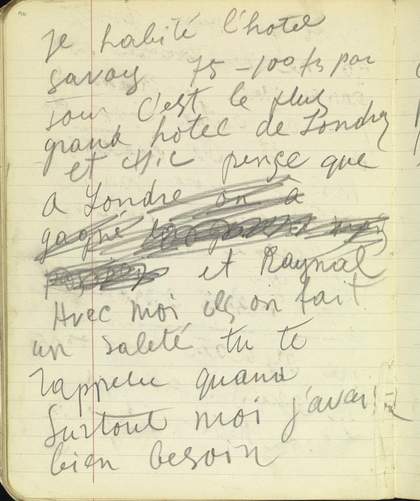 Je habité l'hotel
Savoy 75-100 fs par
Jour c'est le plus
grand hotel de Londres
et chic pense que
a Londre on a
gagné
et Raynal
Avec moi ils on fait
un saleté tu te
rappelle quand
surtout moi j'avai
bien besoin